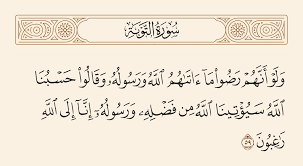 سُورَةُ التَّوْبَةِ
وَلَوْ أَنَّهُمْ رَضُوا۟ مَآ ءَاتَىٰهُمُ ٱللَّهُ وَرَسُولُهُۥ وَقَالُوا۟ حَسْبُنَا
ٱللَّهُ سَيُؤْتِينَا ٱللَّهُ مِن فَضْلِهِۦ وَرَسُولُهُۥٓ إِنَّآ إِلَى ٱللَّهِ
رَٰغِبُونَ ٥٩